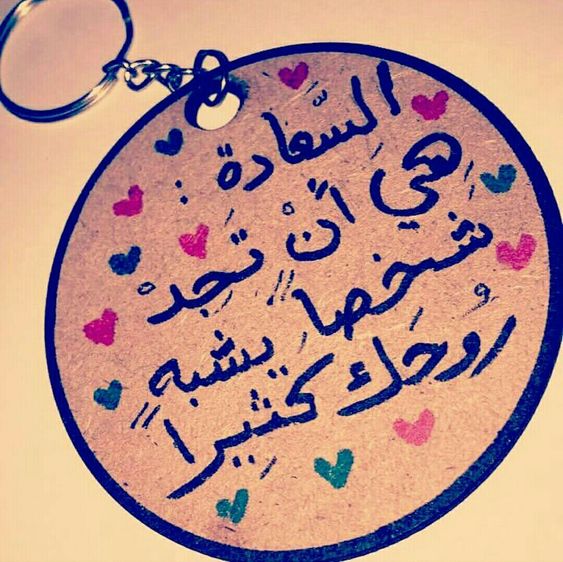 السَّعادة :
هِي أنْ تَجِدْ
شخصاً يشبه
رُوحَك كثيراً